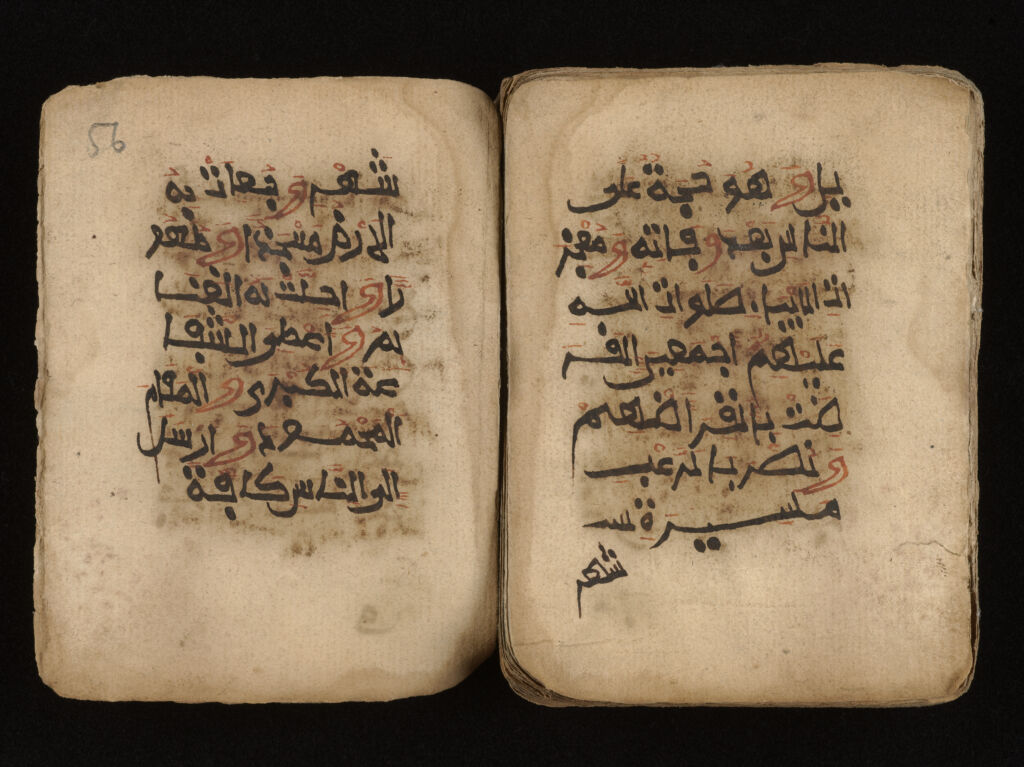 و هو حجة على
الناس بعد وفاته و معجز
ات الانبياء صلوات الله
عليهم اجمعين انقر
ضت بانقراضهم
و نصر بالرعب
مسيرة
شهر
56
شهر و جعلت له
الارض مسجدا و طهو
را و احلت له الغنا
يم و اعطي الشفا
عة الكبرى و المقام
المحمود و ارسل
الى الناس كافة